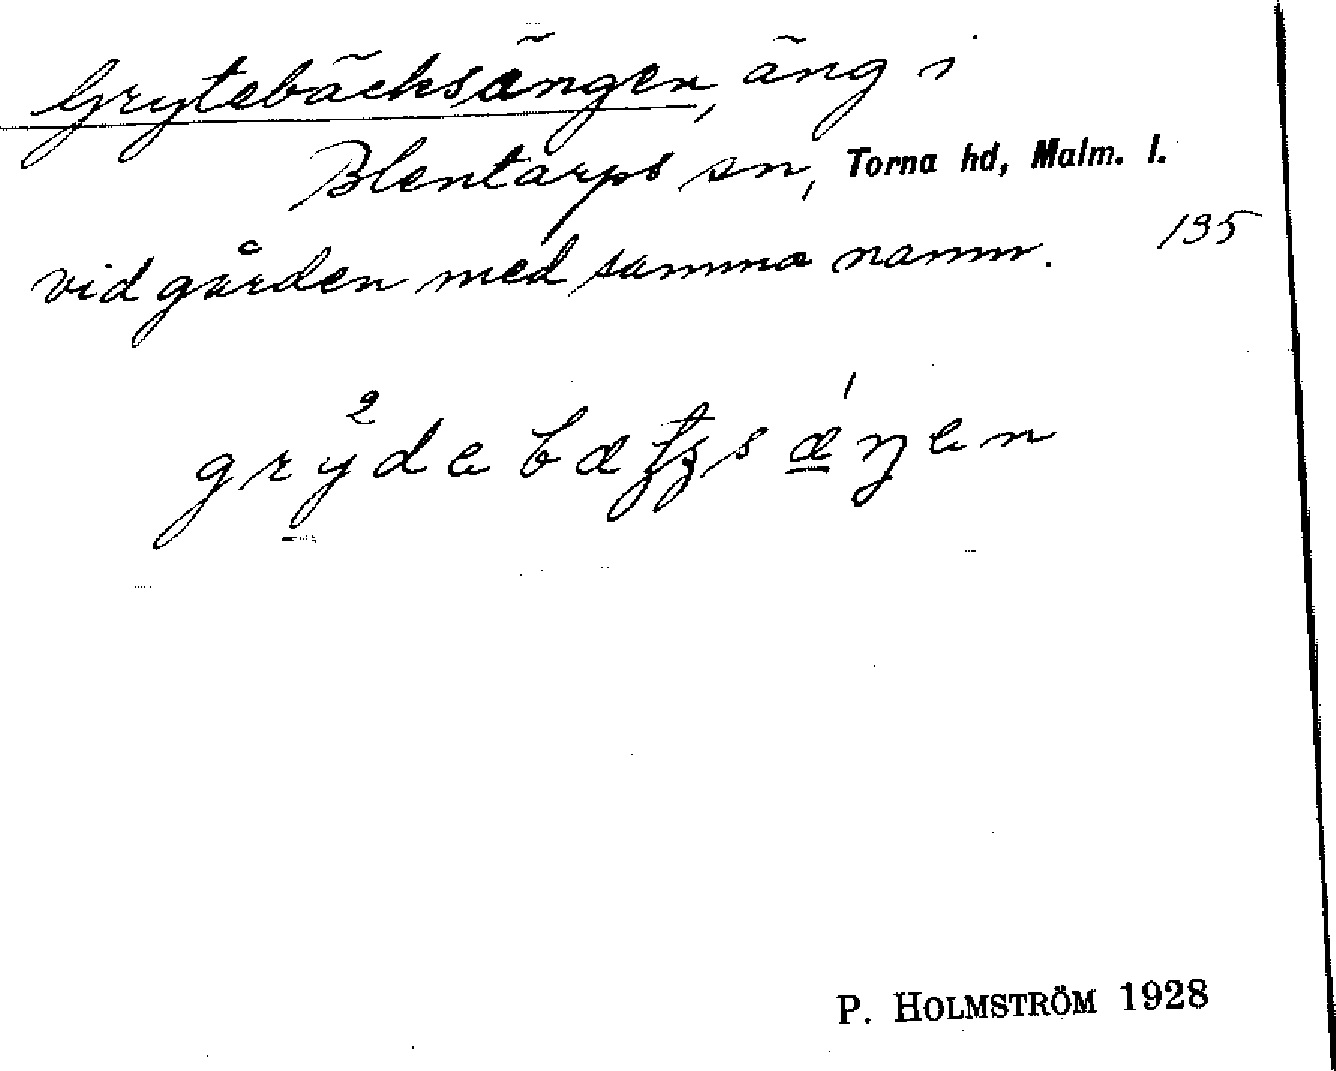 Grytebäcksängen, äng i
Blentarps sn, Torna hd, Malm. l.
195
vid gården med samma namn.
P. HOLMSTRÖM 1928